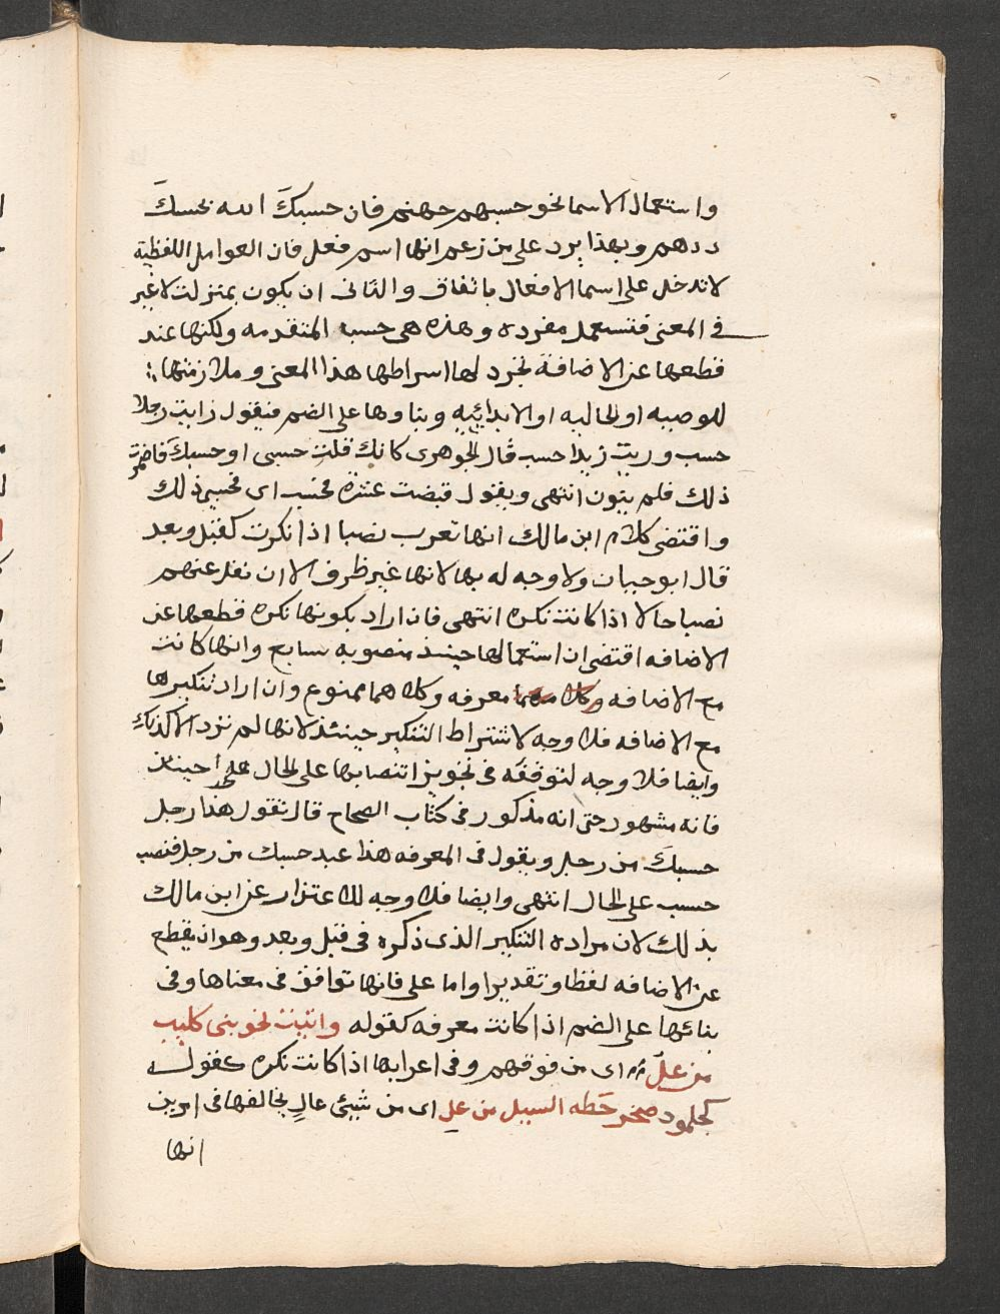 واستعمال الاسما نحو حسبهم جهنم فان حسبكَ الله بحسبكَ
درهم وبهذا يرد على من زعم انها اسم فعل فان العوامل اللفظية
لا تدخل على اسما الافعال باتفاق والثانى ان يكون بمنزلت لا غير
فى المعنى فتستعمل مفرده وهذه هى حسب المتقدمه ولكنها عند
قطعها عن الاضافة تجرد لها اسرابها هذا المعنى وملازمتها
للوصيه او لحاليه او الابدائيه وبناوها على الضم فيقول رايت رجلا
حسب وريت زيدا حسب قال الجوهرى كانك قلت حسبى او حسبكَ فاضمر
ذلك فلم ينون انتهى ويقول قبضت عشره فحسب اى فحسبى ذلك
واقتضى كلام ابن مالك انها تعرب نصبا اذا نكرت كقبل وبعد
قال ابو حيان ولا وجه له بها لانها غير ظرف الا ان نقل عنهم
نصبا حالا اذا كانت نكره انتهى فان اراد بكونها نكره قطعها عن
الاضافه اقتضى ان استعمالها حينئذ منصوبه سايع وانها كانت
مع الاضافه معرفه وكلاهما ممنوع وان اراد تنكيرها
مع الاضافه فلا وجه لاشتراط التنكير حينئذ لانها لم ترد الا كذلك
وايضا فلا وجه لتوقفه فى تجويز انتصابها على الحال حينئذ
فانه مشهور حتى انه مذكور فى كتاب الصحاح قال تقول هذا رجل
حسبكَ من رجل ويقول فى المعرفه هذا عبد حسبك من رجل فنصب
حسب على الحال انتهى وايضا فلا وجه للاعتزار عن ابن مالك
بذلك لان مراده التنكير الذى ذكره فى قبل وبعد وهو ان يقطع
عن الاضافه لفظا وتقديرا واما على فانها توافق فى معناها وفى
بنائها على الضم اذا كانت معرفه كقوله واتيت نحو بنى كليب
من علُ اى من فوقهم وفى اعرابها اذا كانت نكره كقوله
كجلمود صخر حَطه السيل من علِ اى من شيئ عالِ بخالفها فى امرين
انها